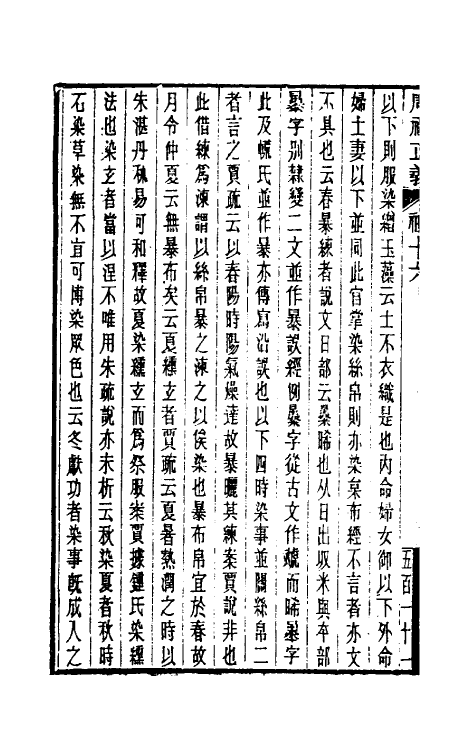 周禮正義 卷十六 五百一十一
以下則服染繒玉藻云士不衣織是也內命婦女御以下外命
婦士妻以下並同此官掌染絲帛則亦染枲布經不言者亦文
不具也云春暴練者說文日部云㬥晞也从日出収米與夲部
㬥字別隸變二文並作暴誤經例㬥字從古文作虣而晞㬥字
此及㡛氏並作暴亦傳寫沿誤也以下四時染事並關絲帛二
者言之賈疏云以春陽時陽氣燥達故暴曬其練案賈說非也
此借練為湅謂以絲帛暴之湅之以俟染也暴布帛宜於春故
月令仲夏云無暴布矣云夏纁玄者賈疏云夏暑熱潤之時以
朱湛丹秫易可和釋故夏染纁玄而為祭服案賈據鍾氏染纁
法也染玄者當以涅不唯用朱疏說亦未析云秋染夏者秋時
石染草染無不宜可博染眾色也云冬獻功者染事既成入之